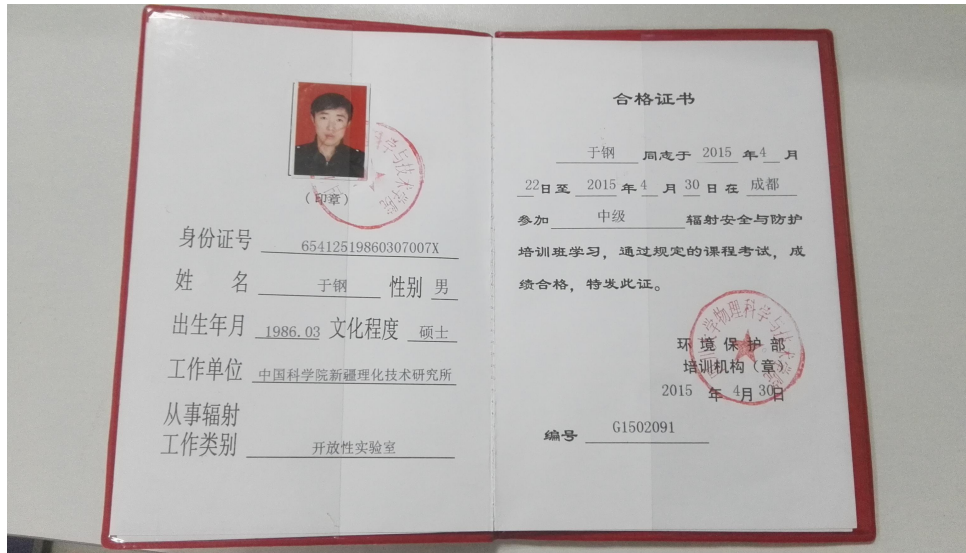 (印章)
身份证号 65412519860307007X
姓 名 于钢 性别 男
出生年月 1986.03 文化程度 硕士
工作单位 中国科学院新疆理化技术研究所
从事辐射
工作类别 开放性实验室
合格证书
于钢 同志于 2015 年4 月
22日至 2015 年 4 月 30 日在 成都
参加 中级 辐射安全与防护
培训班学习，通过规定的课程考试，成
绩合格，特发此证。
学物理科学与技术学院
环境保护部
培训机构（章）
2015 年 4月 30日
编号 G1502091